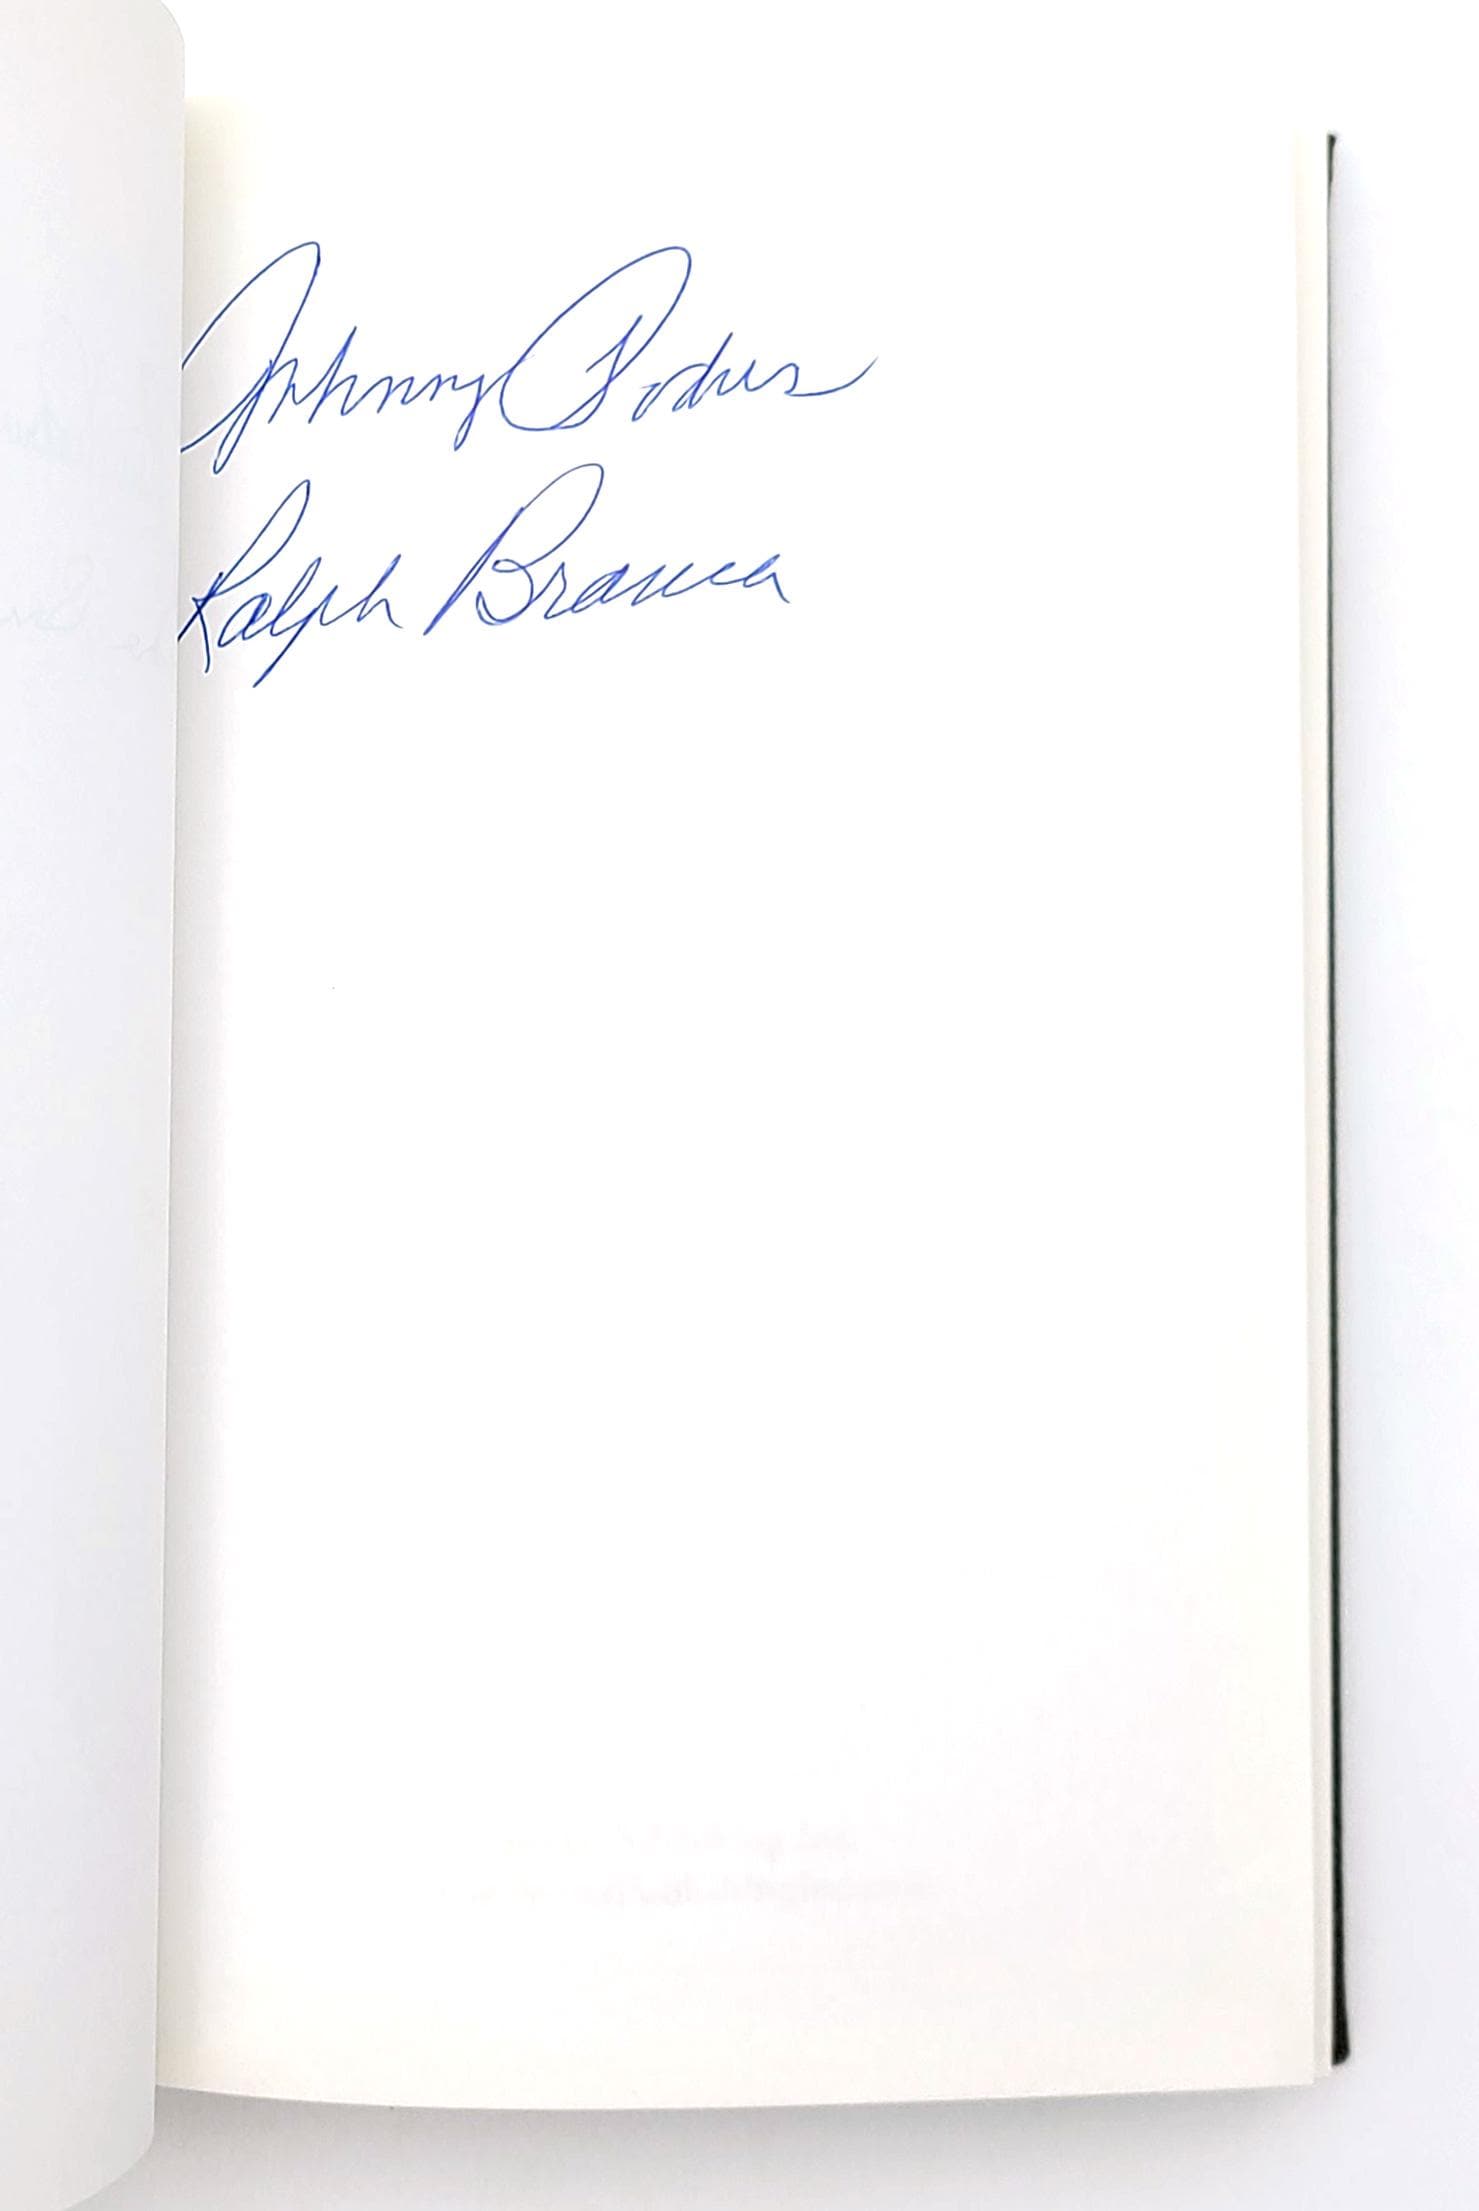 Johnny Podres
Ralph Branca